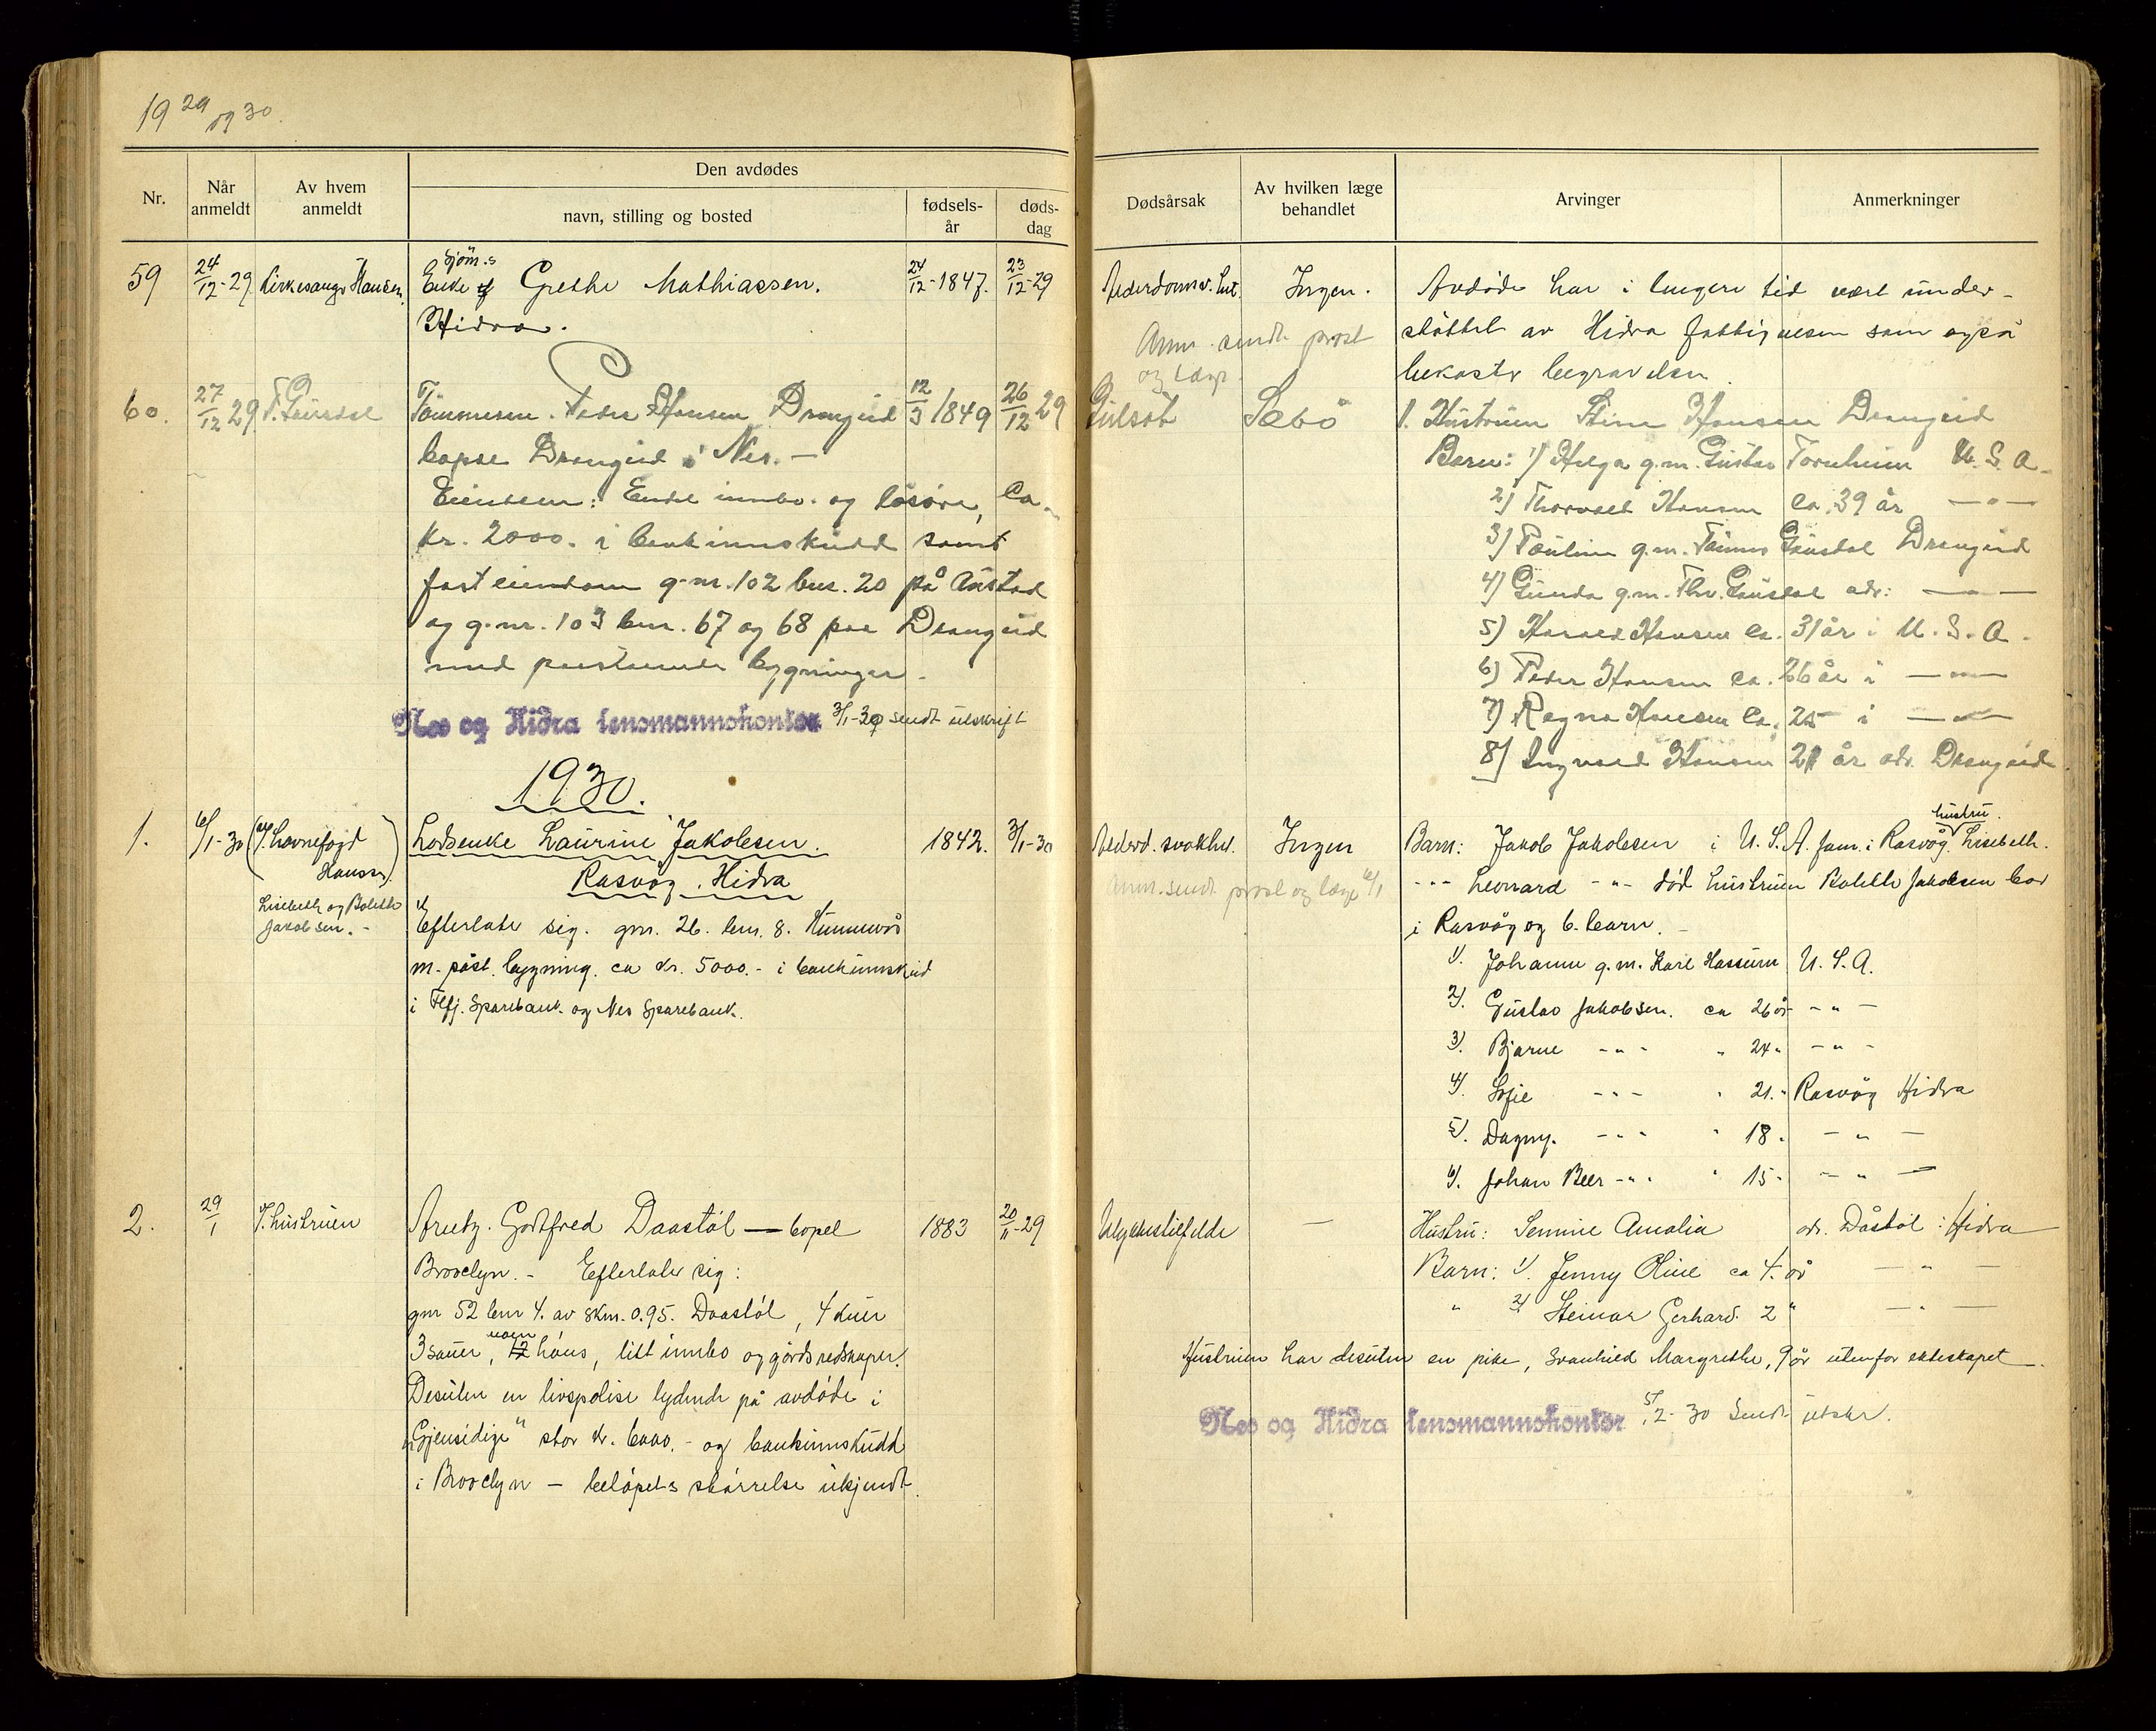 1929 og 30.
Nr.
Når anmeldt
Av hvem anmeldt
Den avdødes
navn, stilling og bosted
fødsels-år
døds-dag
Dødsårsak
Av hvilken læge behandlet
Arvinger
Anmerkninger
59 24/12-29 Kirkesanger Hansen
Sjøm.s
Enke Grethe Mathiassen. 24/12-1847. 23/12-29
Hidra.
Alderdomsv. Ingen.
Avdøde har i lengere tid vært under-
støttet av Hidra fattigvesen som også
bekoster begravelsen.
Anm. sendt prost
og læge.
60. 27/12 29 T. Gausdal
Tømmerm. Peder Hansen Drangeid 12/3 1849 26/12 29
bopæl Drangeid i Nes. —
Eiendom: Endel innbo og løsøre, ca.
kr. 2000.- i bankinnskudd samt
fast eiendom g.nr. 102 bnr. 20 på Austad
og g.nr. 103 bnr. 67 og 68 paa Drangeid
med paastaaende bygninger.
Nes og Hidra lensmannskontor 3/1-30 sendt utskrift
Gulsot Sæbø
1. Hustruen Stine Hansen Drangeid
Barn: 1) Helga g.m. Gustav Tornheim U.S.A.
2) Thorvald Hansen ca. 39 år — " —
3) Pauline g.m. Tønnes Gausdal Drangeid
4) Gunda g.m. Thv. Gausdal adr: — " —
5) Harald Hansen ca. 31 år i U.S.A.
6) Peder Hansen ca. 26 år i — " —
7) Ragna Hansen ca. 25 i — " —
8) Ingvald Hansen 21 år adr. Drangeid.
1930.
1. 6/1-30 (v/ Havnefogd
Hansen)
Lisebeth og Bolette
Jakobsen. -
Losenke Laurine Jakobsen. 1842. 3/1-30
Rasvåg. Hidra
Efterlater sig. gnr. 26. bnr. 8. Kumnevås
m. påst. bygning. ca kr. 5000.- i bankinnskud
i Flfj. Sparebank og Nes Sparebank.
Alderd. svakhet. Ingen
Anm. sendt prost og læge 6/1
hustru
Barn: Jakob Jakobsen i U.S.A. fam. i Rasvåg. Lisebeth.
- " - Leonard - " - død hustruen Bolette Jakobsen bor
i Rasvåg og 6 barn. -
1). Johanne g.m. Karl Hassum U.S.A.
2). Gustav Jakobsen. ca 26 år - " -
3). Bjarne - " - " 24 " - " -
4). Sofie - " - " 21. " Rasvåg Hidra
5). Dagny. - " - " 18 " - " -
6). Johan Beer - " - " 15 " - " -
2. 29/1 V. hustruen
Arntz. Gottfred Daastøl — bopel 1883 20/11-29
Brooclyn. - Efterlater sig:
gnr 52 bnr 4. av skm. 0.95. Daastøl, 4 kuer
3 sauer, noen høns, litt innbo og gårdsredskaper.
Desuten en livspolise lydende på avdøde i
"Gjensidige" stor kr. 6000.- og bankinnskudd
i Brooclyn — beløpets størrelse ukjendt.
Ulykkestilfelde —
Hustru: Semine Amalia adr. Dåstøl i Hidra
Barn: 1). Jenny Oline ca 4. år — " —
" 2) Steinar Gerhard. 2 " — " —
Hustruen har desuten en pike, Svanhild Margrethe, 9 år utenfor ekteskapet.
Nes og Hidra lensmannskontor 5/2-30 Sendt utskr.